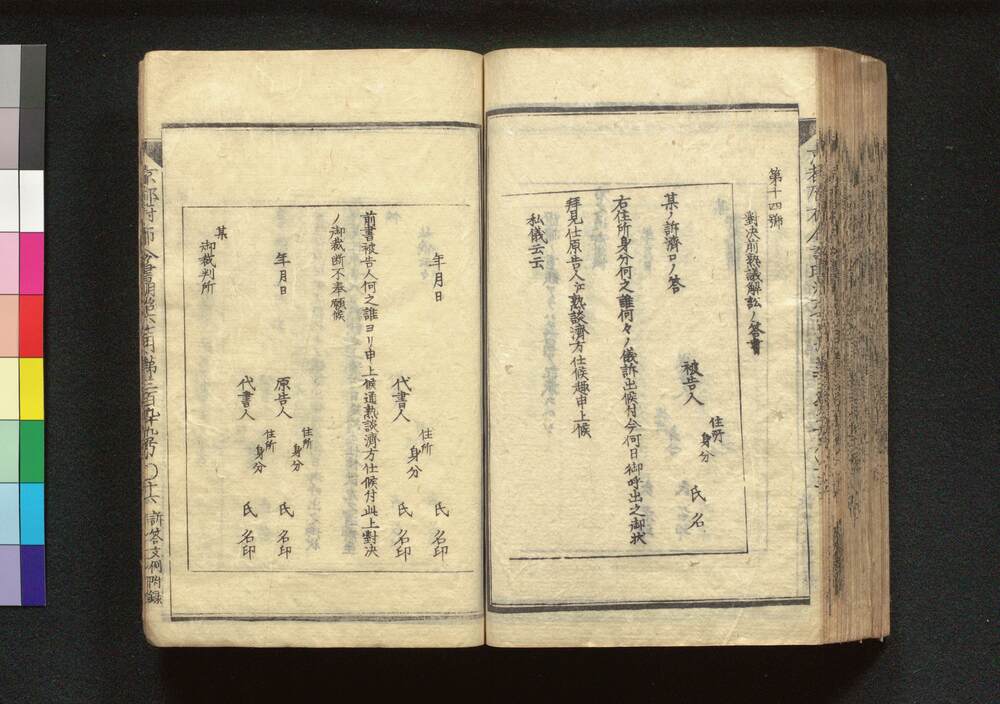 第十四號
對決前熟議解訟ノ答書
被告人
住所
身分
氏名
某ノ訴濟口ノ答
右住所身分何之誰何々ノ儀訴出候付今何日御呼出之御狀
拜見仕原告人ゟ熟談濟方仕候趣申上候
私儀云云
年月日
氏名印
代書人
住所
身分
氏名印
前書被告人何之誰ヨリ申上候通熟談濟方仕候付此上對決
ノ御裁断不奉願候
年月日
原告人
住所
身分
氏名印
代書人
住所
身分
氏名印
某
御裁判所
訴答文例附録